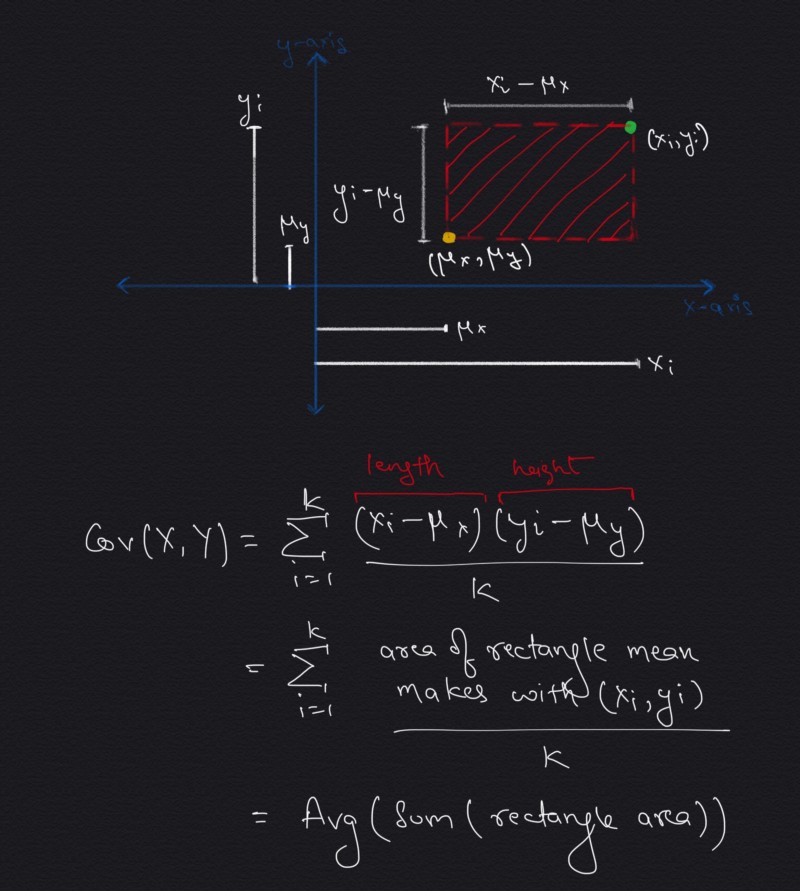 y-axis
xi − μx
yi
(xi, yi)
yi − μy
μy
(μx, μy)
x-axis
μx
xi
length height
Cov(X, Y) = k ∑ i=1 (xi − μx)(yi − μy) / k
= k ∑ i=1 area of rectangle mean
makes with (xi, yi)
k
= Avg(Sum(rectangle area))